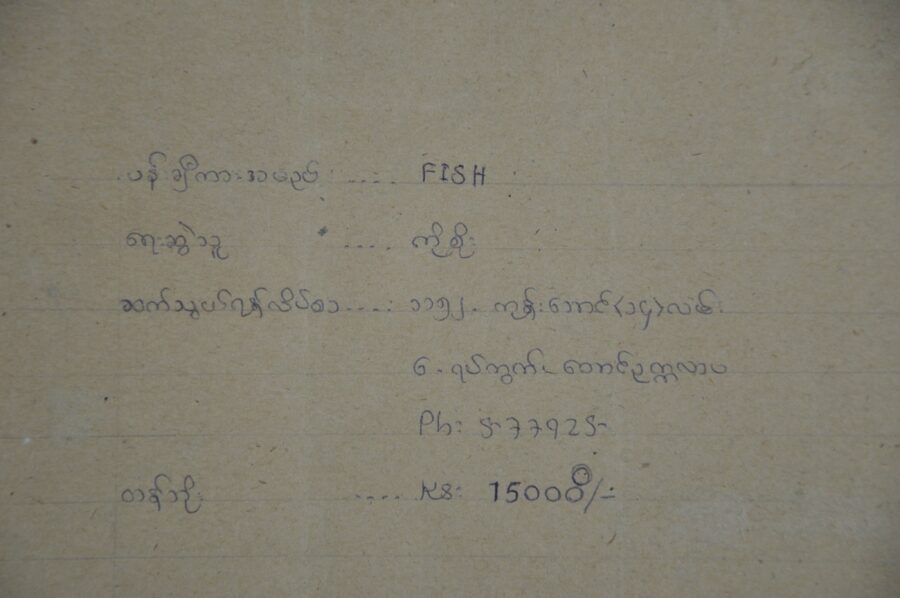 ပန်းချီကားအမည် .... FISH
ရေးဆွဲသူ .... ကိုစိုး
ဆက်သွယ်ရန်လိပ်စာ .... ၁၁၅၂ . ကျွန်းအောင် (၁၄) လမ်း
၆ . ရပ်ကွက် . တောင်ဥက္ကလာပ
Ph: 577925
တန်ဘိုး .... KS: 15000/-